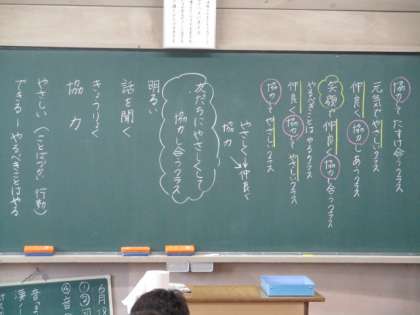 協力とたすけ合うクラス
元気でやさしいクラス
仲良く協力しあうクラス
笑顔で仲良く協力し合うクラス
やるべきことはやるクラス
仲良く協力とやさしいクラス
協力とやさしいクラス
やさしく→仲良く
協力
友だちにやさしくして
協力し合うクラス
明るい
話を聞く
きょうりょく
協力
やさしい（ことばづかい、行動）
できる―やるべきことはやる
6月18